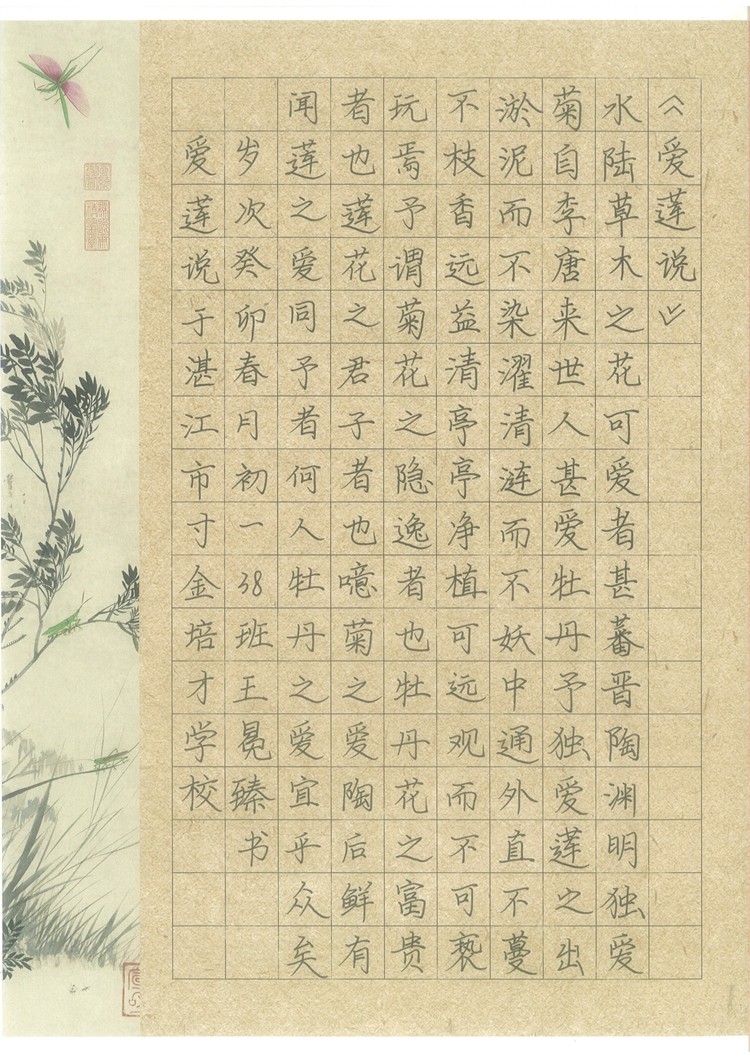 《爱莲说》
水陆草木之花可爱者甚蕃晋陶渊明独爱
菊自李唐来世人甚爱牡丹予独爱莲之出
淤泥而不染濯清涟而不妖中通外直不蔓
不枝香远益清亭亭净植可远观而不可亵
玩焉予谓菊花之隐逸者也牡丹花之富贵
者也莲花之君子者也噫菊之爱陶后鲜有
闻莲之爱同予者何人牡丹之爱宜乎众矣
岁次癸卯春月初一38班王冕臻书
爱莲说于湛江市寸金培才学校